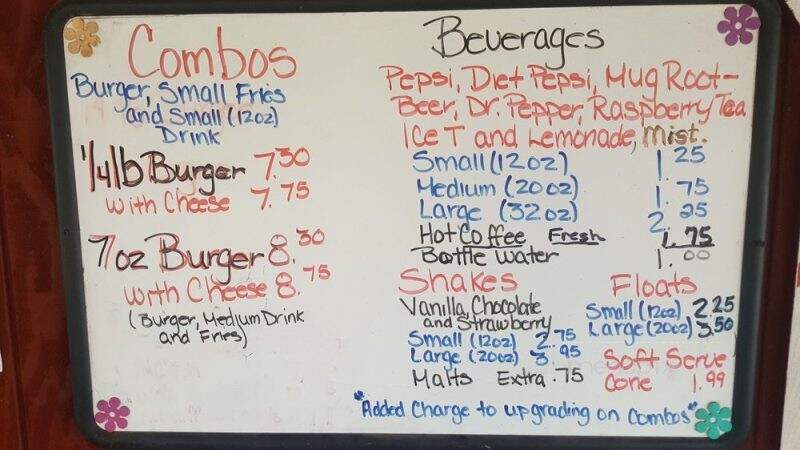 Combos
Burger, Small Fries
and Small (12oz)
Drink
1/4 lb Burger 7.30
with Cheese 7.75
7oz Burger 8.30
with Cheese 8.75
(Burger, Medium Drink
and Fries)
Beverages
Pepsi, Diet Pepsi, Mug Root-
Beer, Dr. Pepper, Raspberry Tea
Ice T and Lemonade, Mist.
Small (12oz) 1.25
Medium (20oz) 1.75
Large (32oz) 2.25
Hot Coffee Fresh 1.75
Bottle Water 1.00
Shakes
Vanilla, Chocolate
and Strawberry
Small (12oz) 2.75
Large (20oz) 3.95
Malts Extra .75
Floats
Small (12oz) 2.25
Large (20oz) 3.50
Soft Serve
Cone 1.99
*Added Charge to upgrading on Combos*